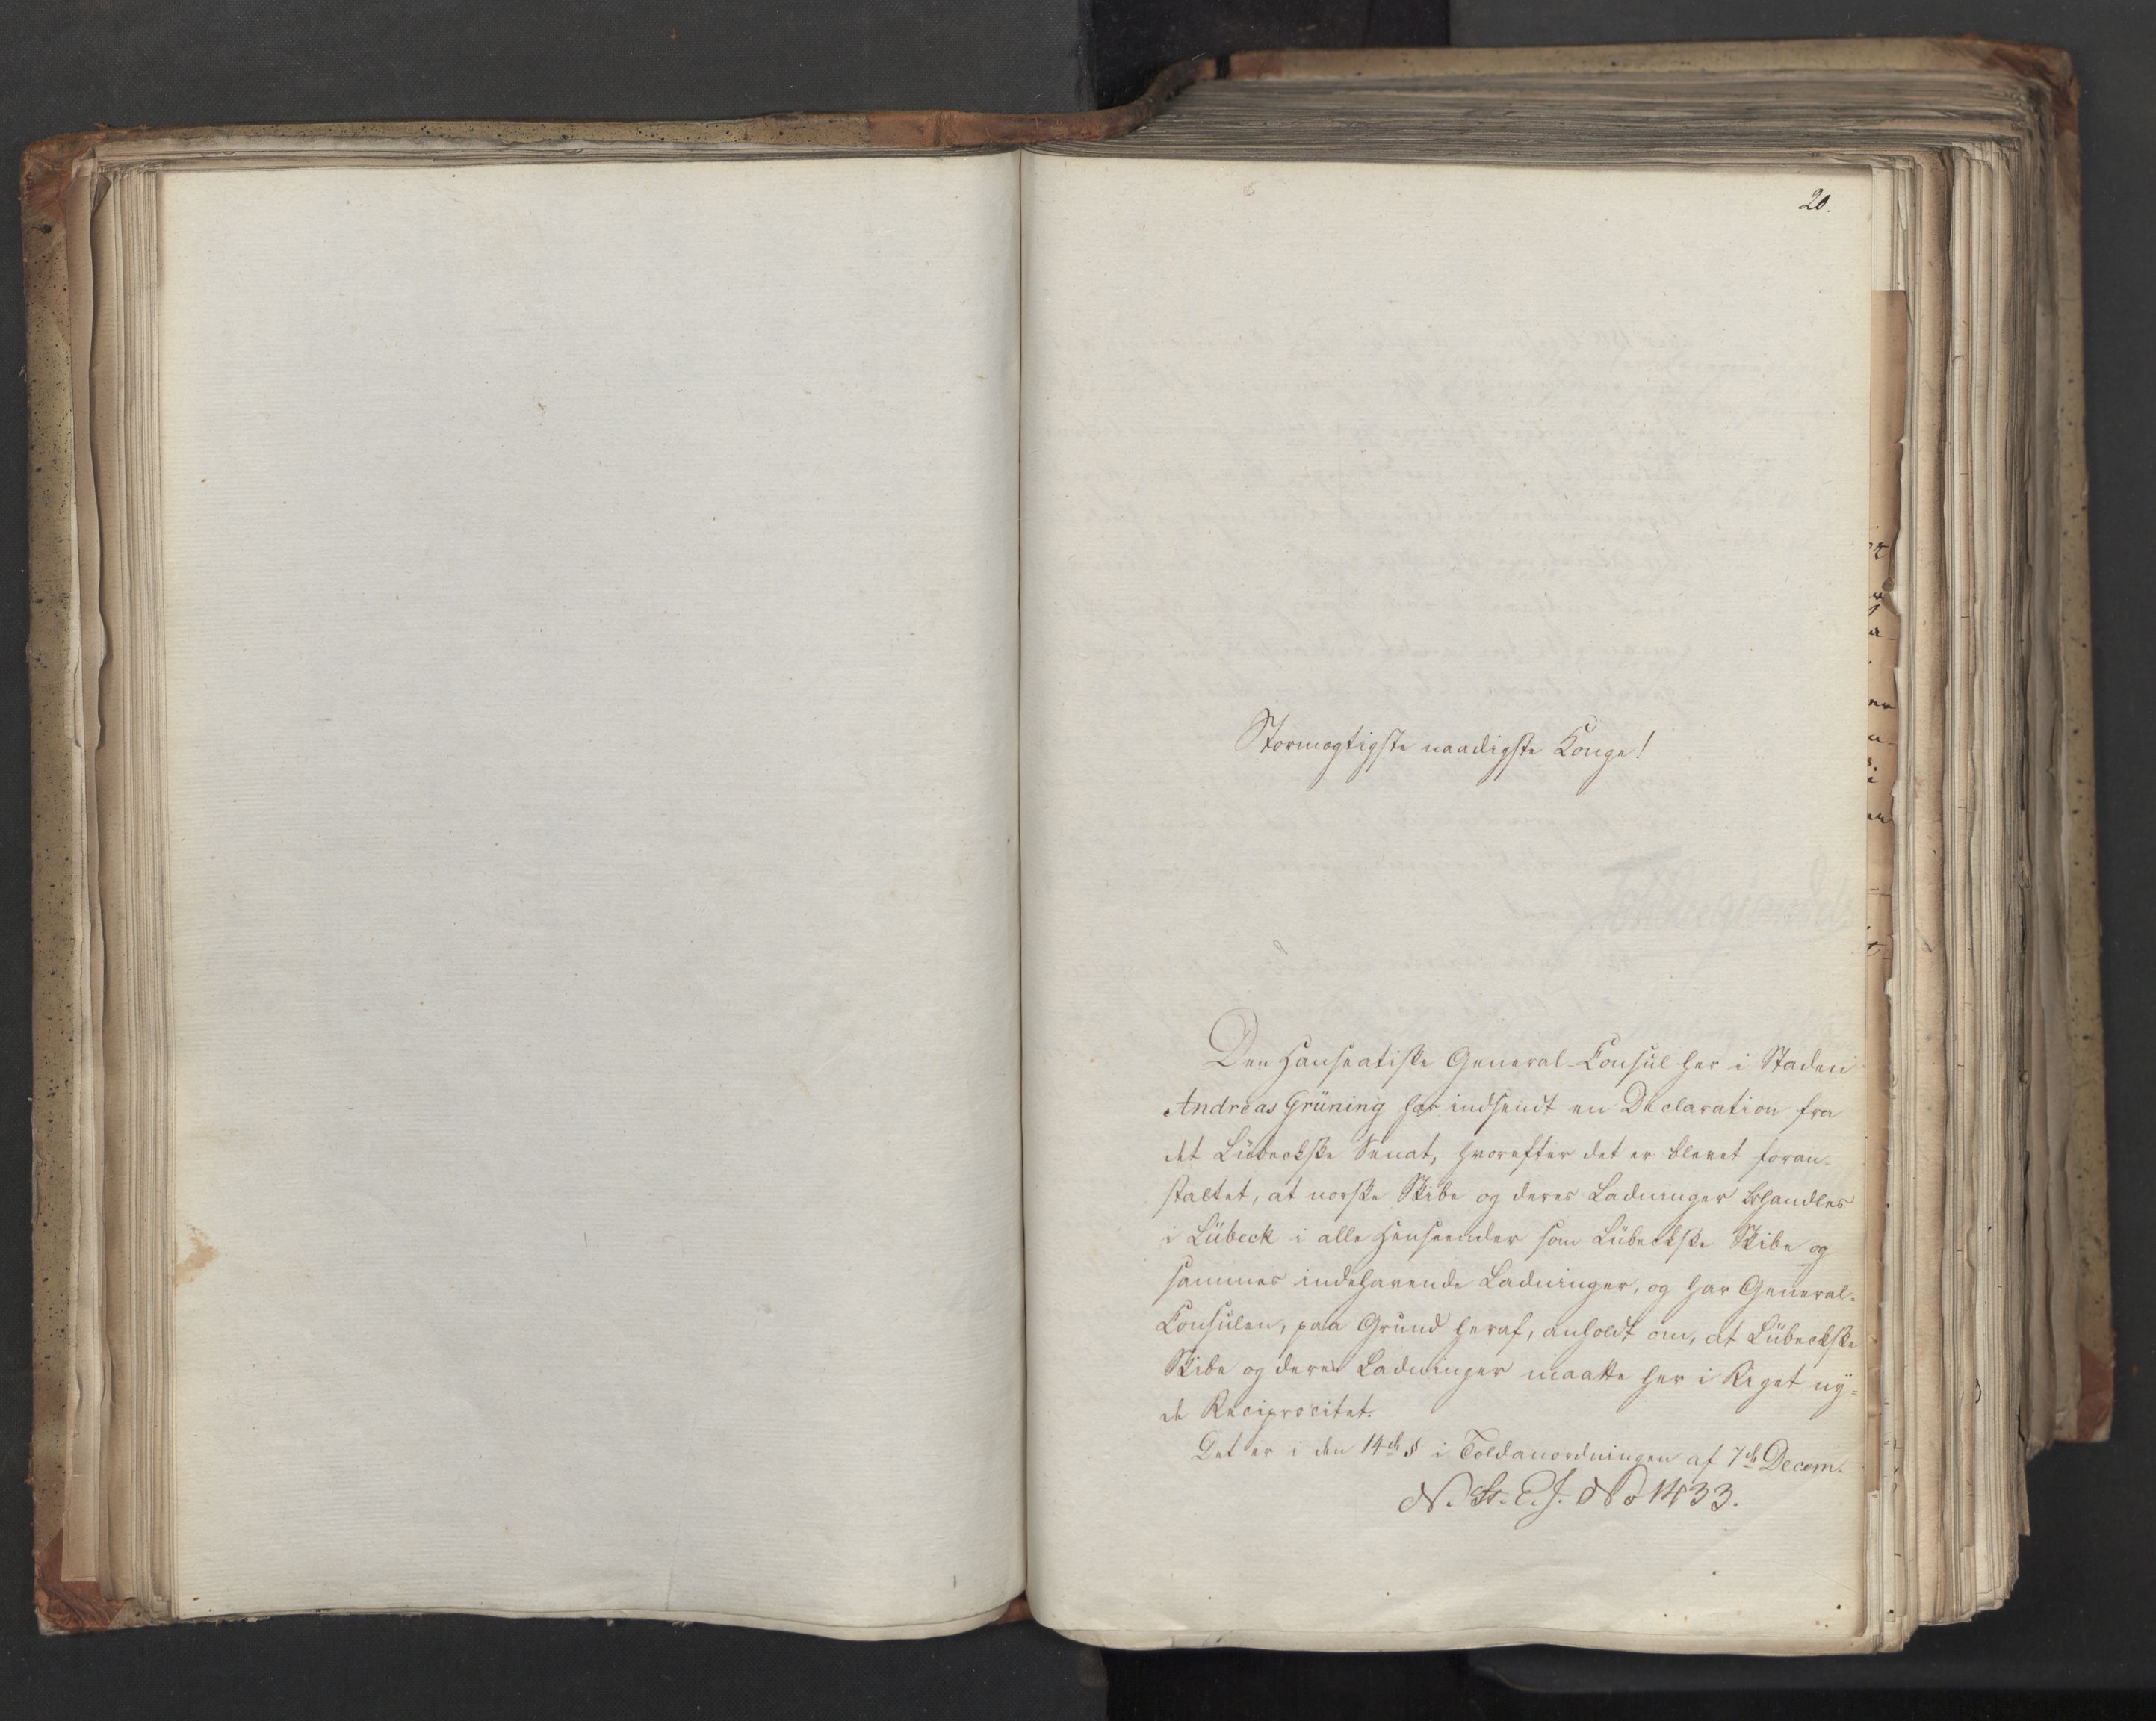 20.
Stormægtigste naadigste Konge!
Den Hanseatiske General-Consul her i Staden
Andreas Grüning har indsendt en Declaration fra
det Lübeckske Senat, hvorefter det er blevet foran-
staltet, at norske Skibe og deres Ladninger behandles
i Lübeck i alle Henseender som Lübeckske Skibe og
sammes indehavende Ladninger, og har General-
Consulen, paa Grund heraf, anholdt om, at Lübeckske
Skibe og deres Ladninger maatte her i Riget ny-
de Reciprocitet.
Det er i den 14de § i Toldanordningen af 7de Decem-
N. St. E. J. No 1433.